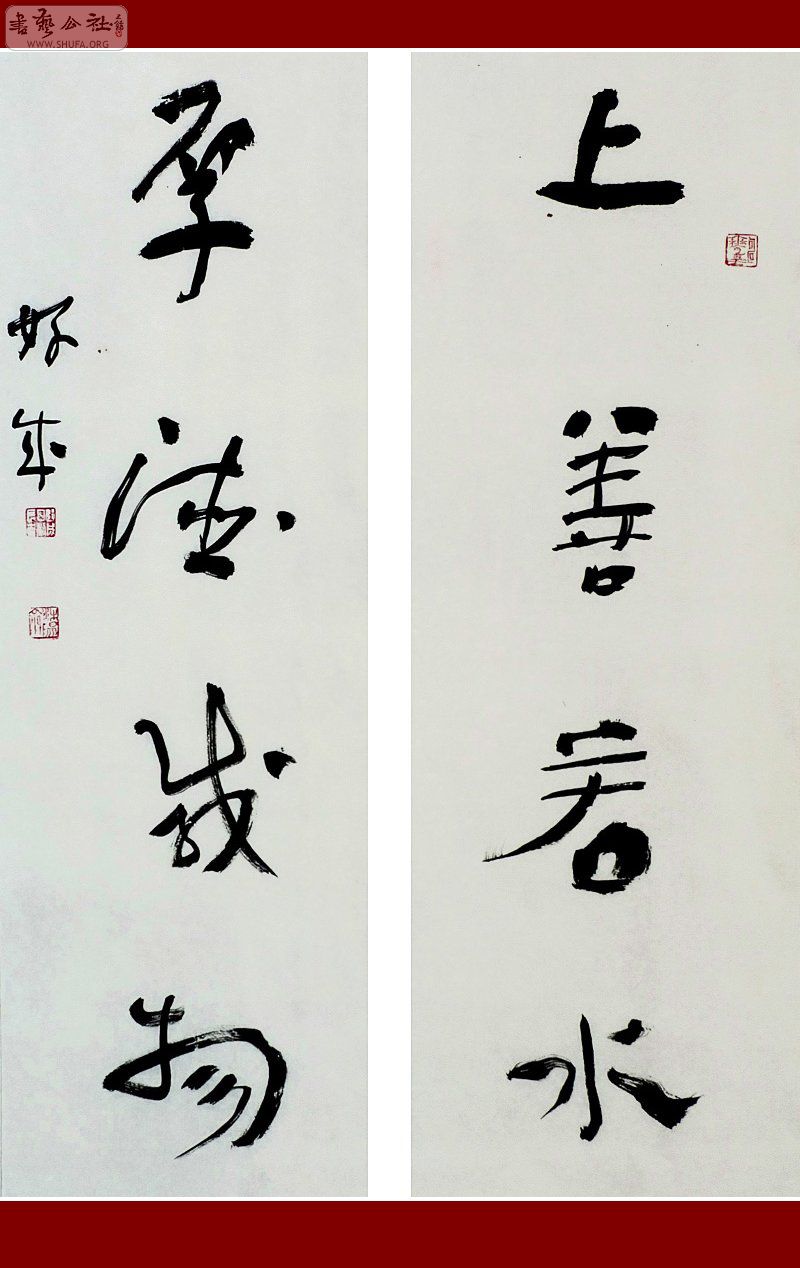 書藝公社
WWW.SHUFA.ORG
上善若水
厚德载物
好成